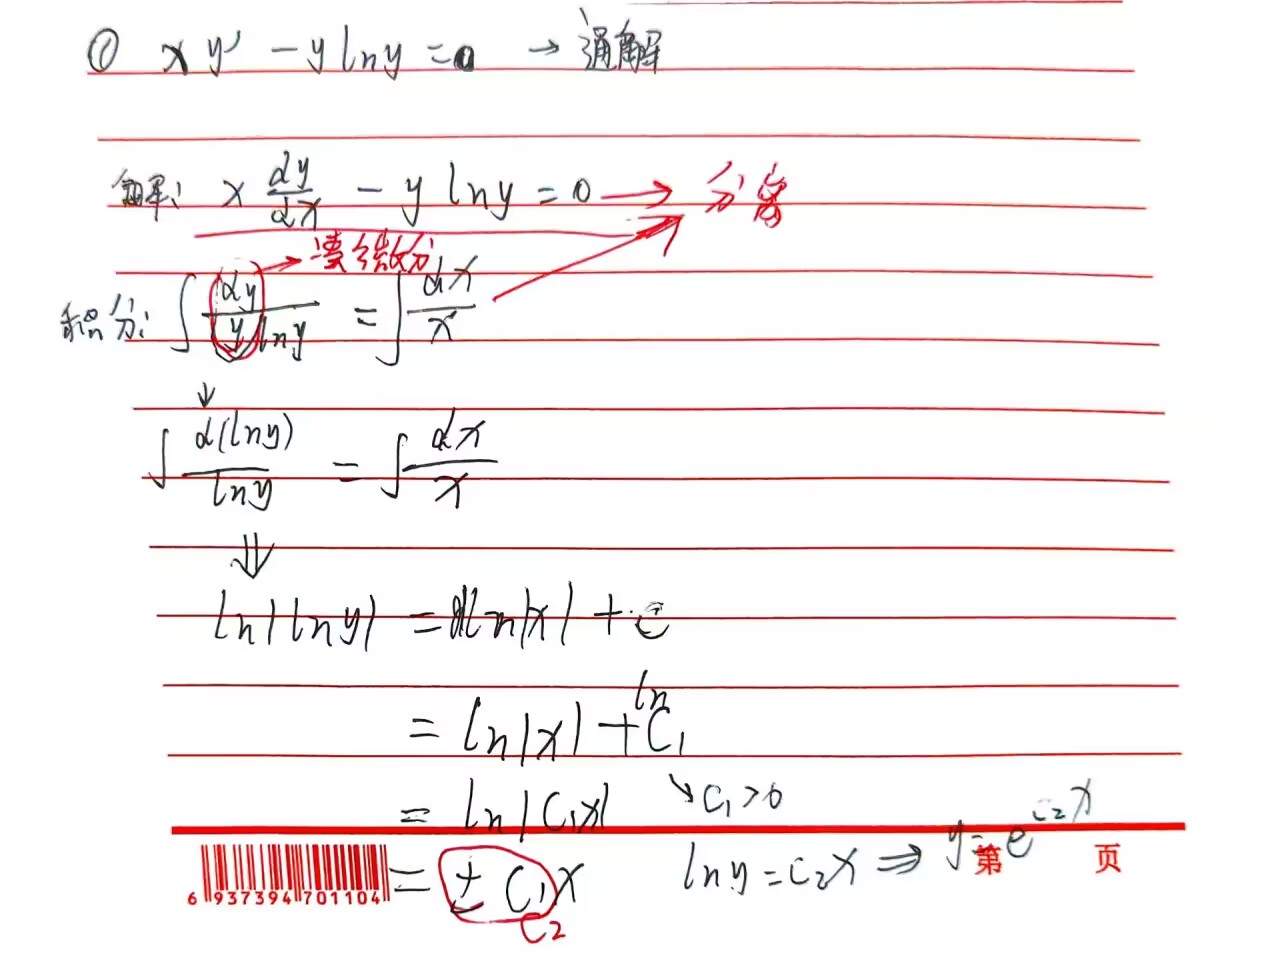 ① xy' - y ln y = 0 → 通解
解: x dy/dx - y ln y = 0 → 分离
→ 凑微分
积分: ∫ dy/(y ln y) = ∫ dx/x
↓
∫ d(ln y)/ln y = ∫ dx/x
⇓
ln|ln y| = ln|x| + C
= ln|x| + ln C₁
= ln|C₁x| ↘ C₁>0
= ± C₁x ln y = C₂x ⇒ y = e^(C₂x)
C₂
第 页
6 937394 701104